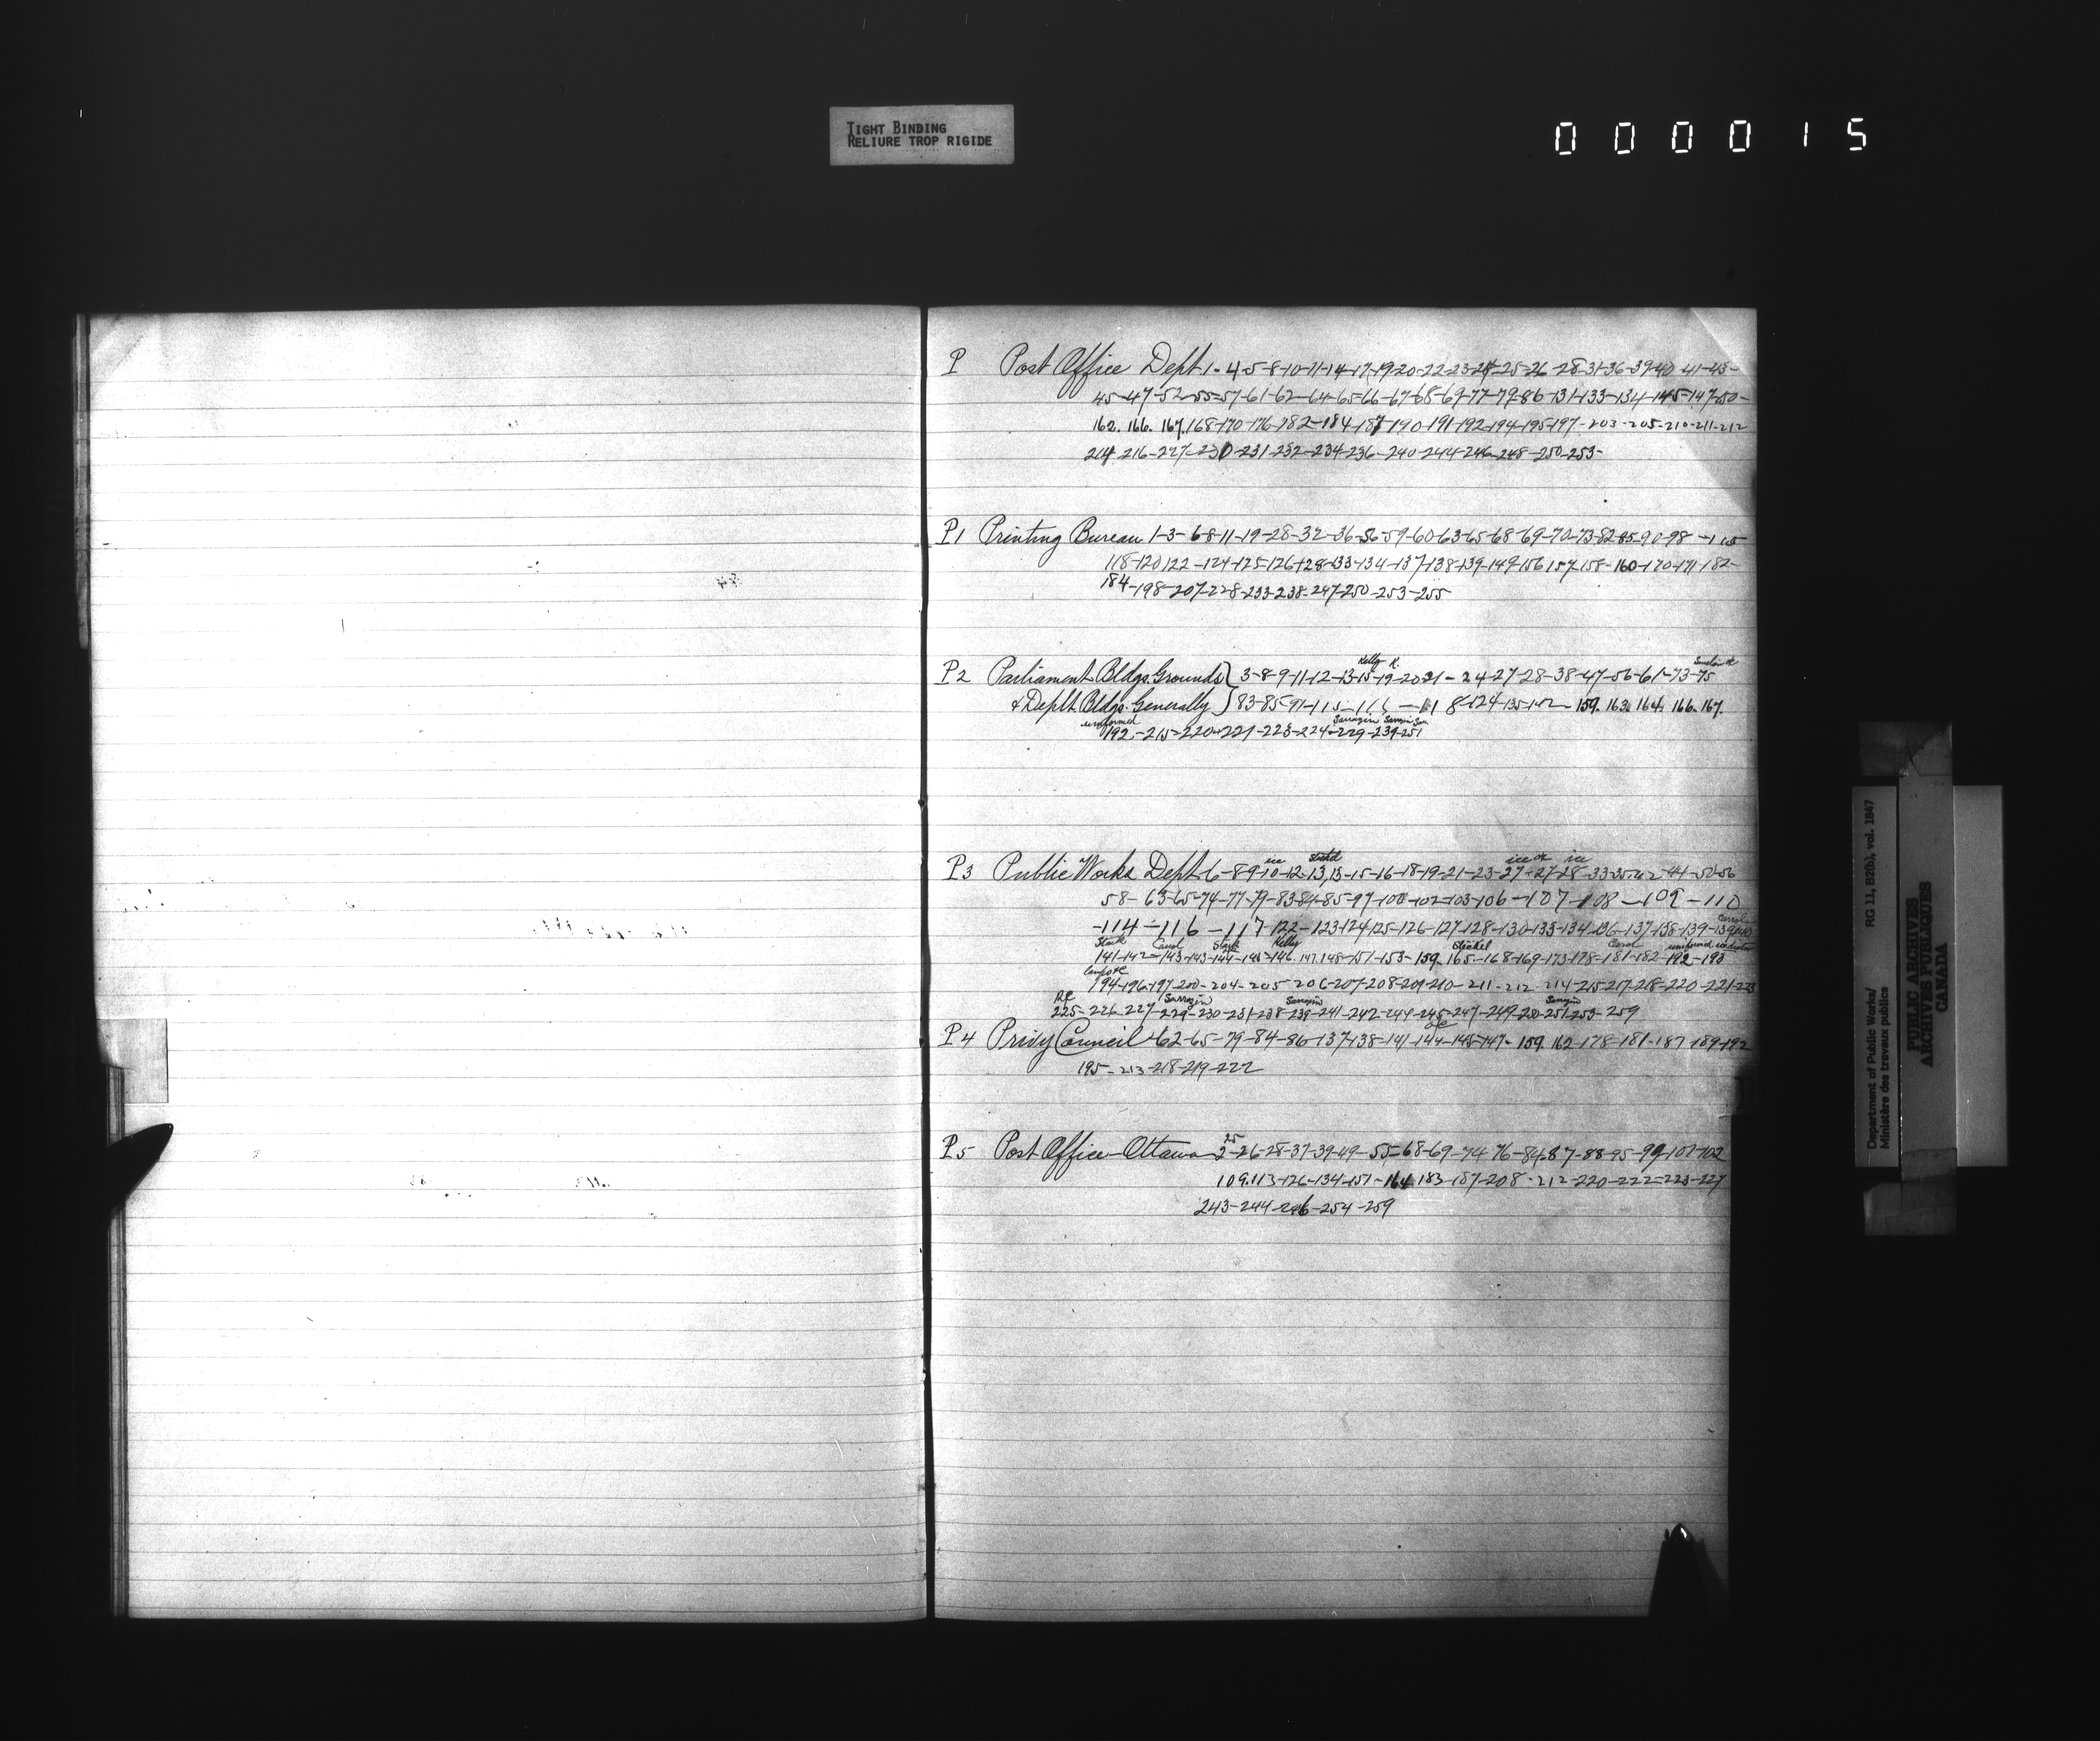 TIGHT BINDING
RELIURE TROP RIGIDE
000015
P Post Office Dept. 1-4-5-8-10-11-14-17-19-20-22-23-24-25-26-28-31-36-39-40-41-43-
45-47-52-55-57-61-62-64-65-66-67-68-69-77-79-86-131-133-134-145-147-50-
162. 166. 167. 168-170-176-182-184-187-190-191-192-194-195-197-203-205-210-211-212
214-216-227-230-231-232-234-236-240-244-246-248-250-253-
P1 Printing Bureau 1-3-6-8-11-19-28-32-36-56-59-60-63-65-68-69-70-73-82-85-90-98-115
118-120-122-124-125-126-128-133-134-137-138-139-149-156-157-158-160-170-171-182-
184-198-207-228-233-238-247-250-253-255
Kelly K.
P2 Parliament Bldgs. Grounds } 3-8-9-11-12-13-15-19-20-21-24-27-28-38-47-56-61-73-75
& Deptl. Bldgs. Generally } 83-85-91-115-116-118-124-135-142-159. 163. 164. 166. 167.
uniformed Sarrazin
192-215-220-221-223-224-229-239-251
ice ice ice
P3 Public Works Dept. 6-8-9-10-12-13,13-15-16-18-19-21-23-27-27-28-33-35-42-44-50-56
58-63-65-74-77-79-83-84-85-97-100-102-103-106-107-108-109-110
-114-116-117-122-123-124-125-126-127-128-130-133-134-136-137-138-139-139
Carrol Kelly Stockel Carrol uniformed
141-142-143-143-144-146-146. 147. 148-151-153-159. 165-168-169-173-178-181-182-192-193
194-196-197-200-204-205-206-207-208-209-210-211-212-214-215-217-218-220-221-223
Sarrazin Sarrazin Sarrazin
225-226-227-229-230-231-238-239-241-242-244-245-247-249-250-251-253-259
P4 Privy Council 62-65-79-84-86-137-138-141-144-145-147-159. 162-178-181-187-189-192
195-213-218-219-222
25
P5 Post Office Ottawa 2-26-28-37-39-49-55-68-69-74-76-84-87-88-95-99-101-102
109. 113-126-134-151-164-183-187-208-212-220-222-223-227
243-244-246-254-259
Department of Public Works/ RG 11, B2(b), vol. 1847
Ministère des travaux publics
PUBLIC ARCHIVES
ARCHIVES PUBLIQUES
CANADA